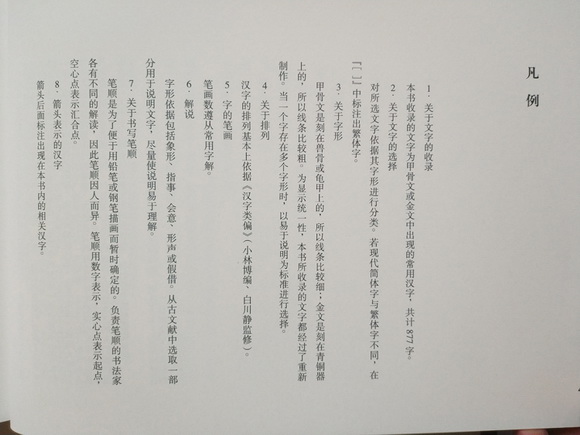 凡例
1. 关于文字的收录
本书收录的文字为甲骨文或金文中出现的常用汉字，共计 877 字。
2. 关于文字的选择
对所选文字依据其字形进行分类。若现代简体字与繁体字不同，在
『［ ］』中标注出繁体字。
3. 关于字形
甲骨文是刻在兽骨或龟甲上的，所以线条比较细；金文是刻在青铜器
上的，所以线条比较粗。为显示统一性，本书所收录的文字都经过了重新
制作。当一个字存在多个字形时，以易于说明为标准进行选择。
4. 关于排列
汉字的排列基本上依据《汉字类编》（小林博编、白川静监修）。
5. 字的笔画
笔画数遵从常用字解。
6. 解说
字形依据包括象形、指事、会意、形声或假借。从古文献中选取一部
分用于说明文字，尽量使说明易于理解。
7. 关于书写笔顺
笔顺是为了便于用铅笔或钢笔描画而暂时确定的。负责笔顺的书法家
各有不同的解读，因此笔顺因人而异。笔顺用数字表示，实心点表示起点，
空心点表示汇合点。
8. 箭头表示的汉字
箭头后面标注出现在本书内的相关汉字。